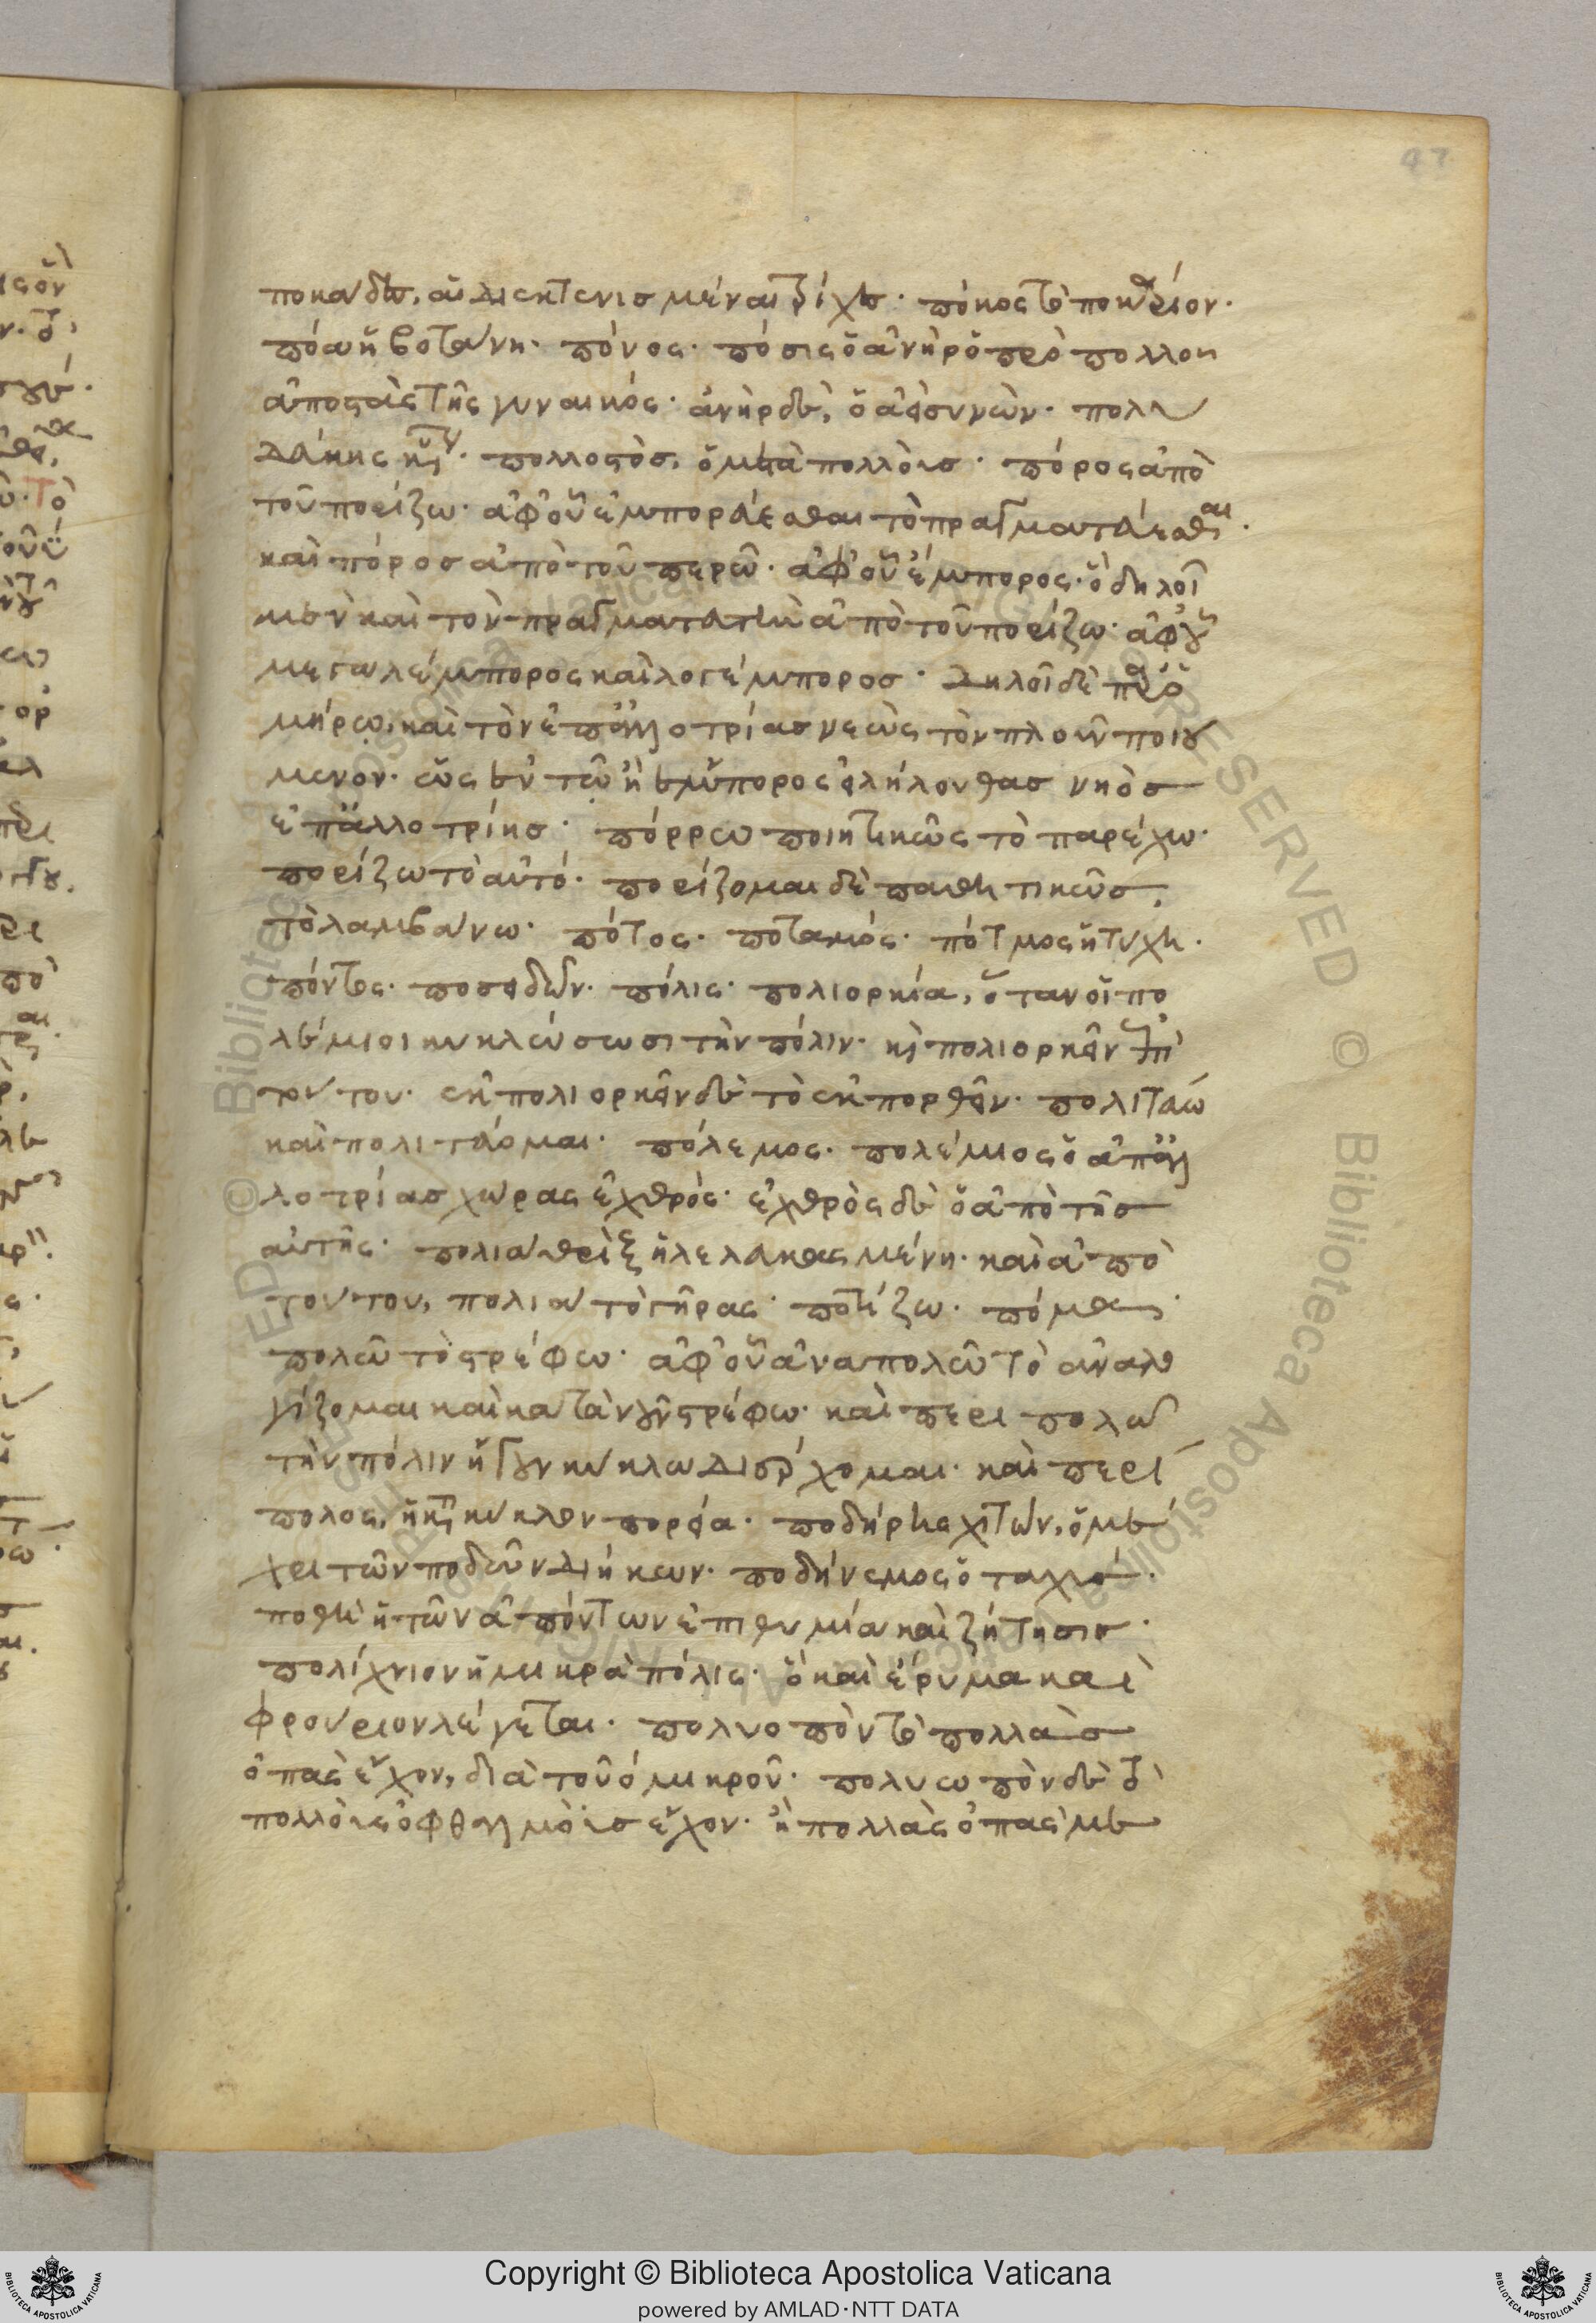 97
ποκάδες, αἱ διεκτενισμέναι τρίχες· πόκος τὸ ποκάριον·
πόα ἡ βοτάνη· πόνος· πόσις ὁ ἀνὴρ ὁ πρὸ πολλοῦ
ἀποστὰς τῆς γυναικός· ἀνὴρ δὲ, ὁ ἀεὶ συνών· πολυ
δεύκης · πολλοστὸς, ὁ μετὰ πολλοὺς· πόρος ἀπὸ
τοῦ πορίζω· ἀφ' οὗ ἐμπορεύεσθαι τὸ πραγματεύεσθαι·
καὶ πόρος ἀπὸ τοῦ περῶ· ἀφ' οὗ ἔμπορος· ὃ δηλοῖ
μὲν καὶ τὸν πραγματευτὴν ἀπὸ τοῦ πορίζω· ἀφ' οὗ
μεγαλέμπορος καὶ λογέμπορος· δηλοῖ δὲ παρ' ὁ
μήρω, καὶ τὸν ἐπ' ἀλλοτρίας νεὼς τὸν πλοῦν ποιού
μενον· ὡς ἐν τῷ ἢ ἔμπορος εἰλήλουθας νηὸς
ἐπ' ἀλλοτρίης· πόρρω ποιητικῶς τὸ παρέχω·
πορίζω τὸ αὐτό· πορίζομαι δὲ παθητικῶς,
τὸ λαμβάνω· πότος· ποταμός· πότμος ἡ τύχη·
πόντος· ποσειδῶν· πόλις· πολιορκία, ὅταν οἱ πο
λέμιοι κυκλώσωσι τὴν πόλιν· καὶ πολιορκεῖν ἐπὶ
τούτου· ἐκπολιορκεῖν δὲ τὸ ἐκπορθεῖν· πολιτεύω
καὶ πολιτεύομαι· πόλεμος· πολέμιος ὁ ἀπ' ἀλ
λοτρίας χώρας ἐχθρός· ἐχθρὸς δὲ ὁ ἀπὸ τῆς
αὐτῆς· πολιὰ θρὶξ ἡ λελευκασμένη· καὶ ἀπὸ
τούτου, πολιὰ τὸ γῆρας· ποτίζω· πόμα·
πολῶ τὸ στρέφω· ἀφ' οὗ ἀναπολῶ τὸ ἀναλο
γίζομαι καὶ κατὰ νοῦν στρέφω· καὶ περιπολῶ
τὴν πόλιν ἤγουν κύκλω διέρχομαι· καὶ περί
πολος, κύκλον πορεία· ποδήρης χιτών, ὁ μέ
χρι τῶν ποδῶν διήκων· ποδήνεμος ὁ ταχύς·
ποθὴ ἡ τῶν ἀπόντων ἐπιθυμία καὶ ζήτησις·
πολίχνιον ἡ μικρὰ πόλις· ὃ καὶ ἔρυμα καὶ
φρούριον λέγεται· πολυοπὸν τὸ πολλὰς
ὀπὰς ἔχον, διὰ τοῦ ο μικροῦ· πολυωπὸν δὲ τὸ
πολλοὺς ὀφθαλμοὺς ἔχον· ἢ πολλὰς ὀπὰς με
Copyright © Biblioteca Apostolica Vaticana
powered by AMLAD·NTT DATA